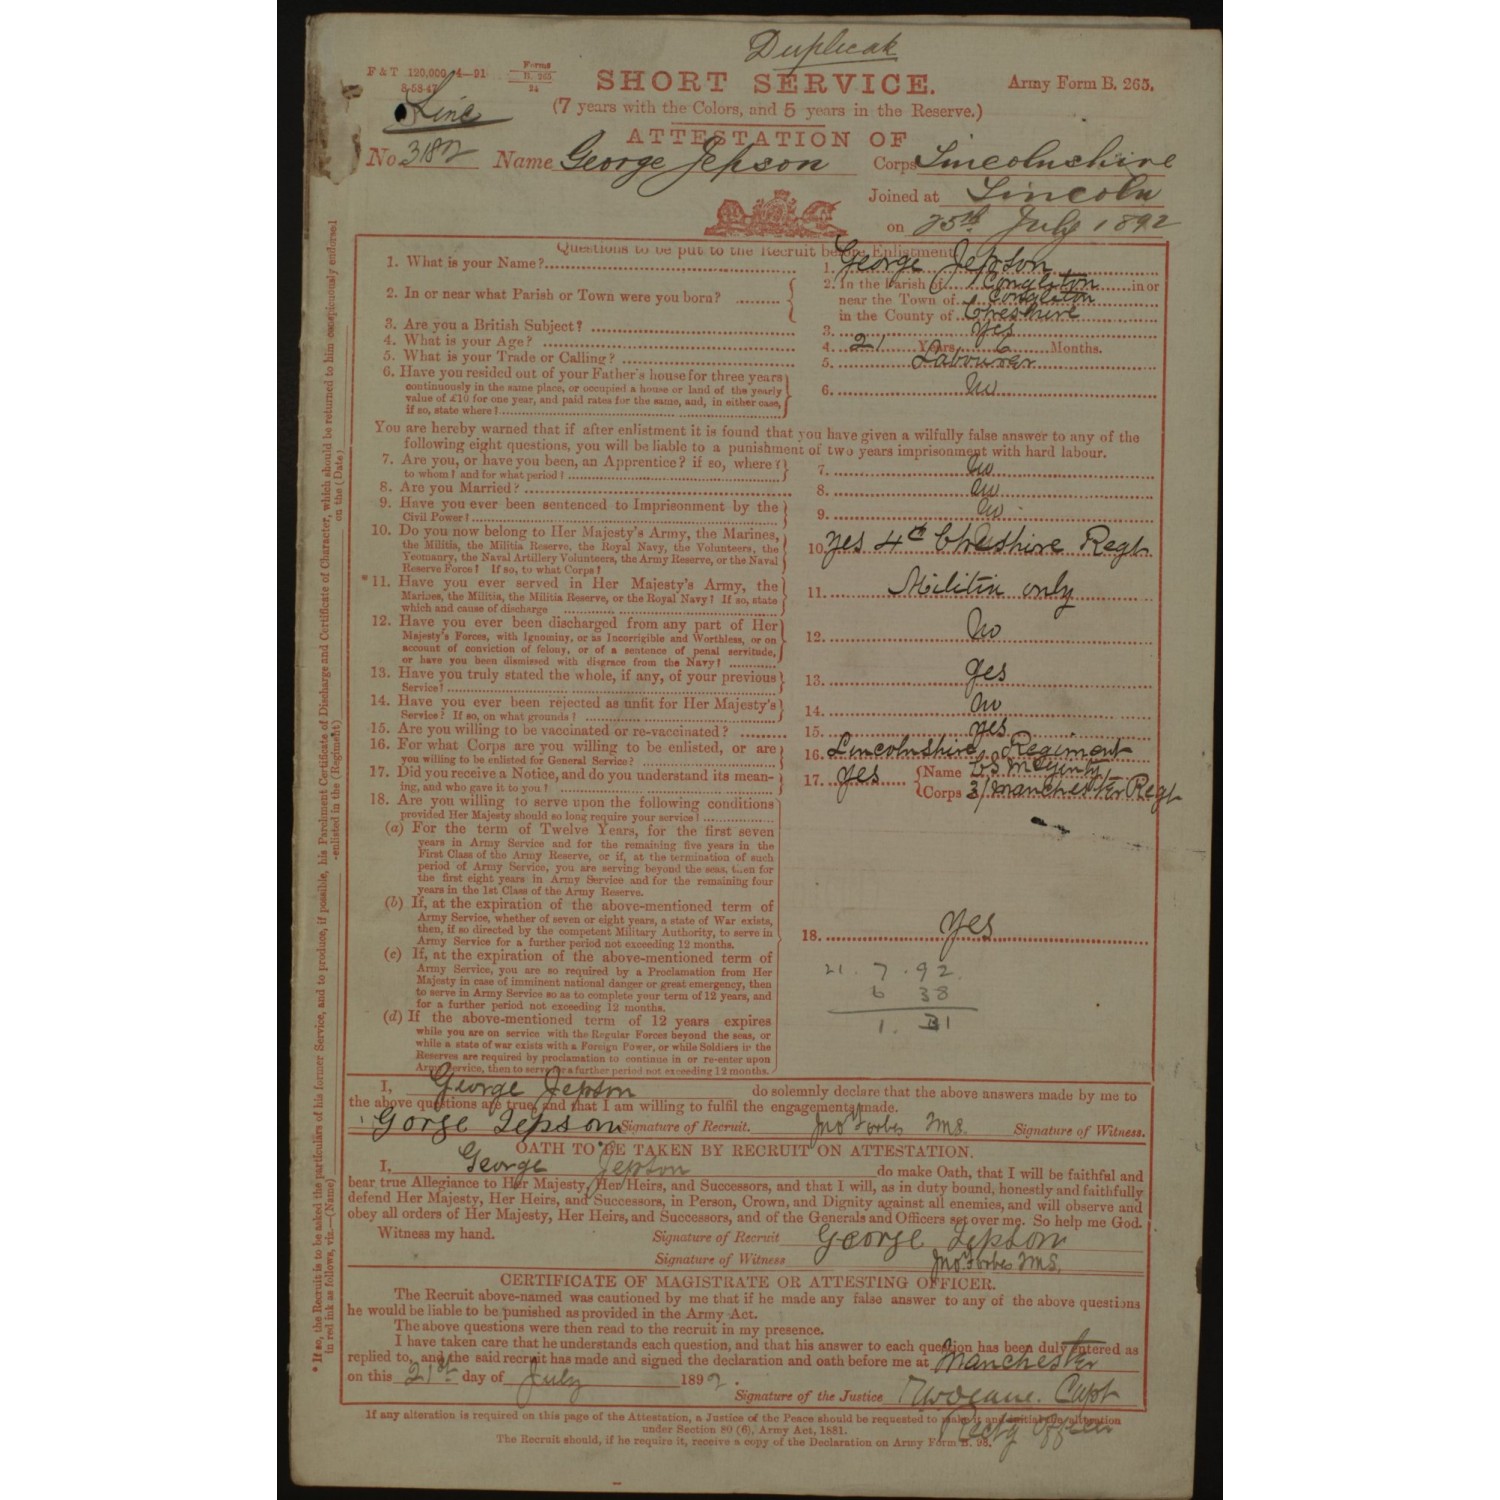 Duplicate
F & T 120,000 4—91
8-58-47
Forms
B. 265
24
SHORT SERVICE.
Army Form B. 265.
Line
(7 years with the Colors, and 5 years in the Reserve.)
ATTESTATION OF
No. 3182 Name George Jepson Corps Lincolnshire
Joined at Lincoln
on 25th July 1892
Questions to be put to the Recruit before Enlistment
1. What is your Name? 1. George Jepson
2. In or near what Parish or Town were you born? 2. In the Parish of Congleton in or
near the Town of Congleton
in the County of Cheshire
3. Are you a British Subject? 3. Yes
4. What is your Age? 4. 21 Years 6 Months.
5. What is your Trade or Calling? 5. Labourer
6. Have you resided out of your Father's house for three years
continuously in the same place, or occupied a house or land of the yearly
value of £10 for one year, and paid rates for the same, and, in either case,
if so, state where? 6. No
You are hereby warned that if after enlistment it is found that you have given a wilfully false answer to any of the
following eight questions, you will be liable to a punishment of two years imprisonment with hard labour.
7. Are you, or have you been, an Apprentice? if so, where?
to whom? and for what period? 7. No
8. Are you Married? 8. No
9. Have you ever been sentenced to Imprisonment by the
Civil Power? 9. No
10. Do you now belong to Her Majesty's Army, the Marines,
the Militia, the Militia Reserve, the Royal Navy, the Volunteers, the
Yeomanry, the Naval Artillery Volunteers, the Army Reserve, or the Naval
Reserve Force? If so, to what Corps? 10. Yes 4th Cheshire Regt
* 11. Have you ever served in Her Majesty's Army, the
Marines, the Militia, the Militia Reserve, or the Royal Navy? If so, state
which and cause of discharge 11. Militia only
12. Have you ever been discharged from any part of Her
Majesty's Forces, with Ignominy, or as Incorrigible and Worthless, or on
account of conviction of felony, or of a sentence of penal servitude,
or have you been dismissed with disgrace from the Navy? 12. No
13. Have you truly stated the whole, if any, of your previous
Service? 13. Yes
14. Have you ever been rejected as unfit for Her Majesty's
Service? If so, on what grounds? 14. No
15. Are you willing to be vaccinated or re-vaccinated? 15. Yes
16. For what Corps are you willing to be enlisted, or are
you willing to be enlisted for General Service? 16. Lincolnshire Regiment
17. Did you receive a Notice, and do you understand its mean-
ing, and who gave it to you? 17. Yes Name CS McGinty
Corps 3/Manchester Regt
18. Are you willing to serve upon the following conditions
provided Her Majesty should so long require your service?
(a) For the term of Twelve Years, for the first seven
years in Army Service and for the remaining five years in the
First Class of the Army Reserve, or if, at the termination of such
period of Army Service, you are serving beyond the seas, then for
the first eight years in Army Service and for the remaining four
years in the 1st Class of the Army Reserve.
(b) If, at the expiration of the above-mentioned term of
Army Service, whether of seven or eight years, a state of War exists,
then, if so directed by the competent Military Authority, to serve in
Army Service for a further period not exceeding 12 months.
18. Yes
(c) If, at the expiration of the above-mentioned term of
Army Service, you are so required by a Proclamation from Her
Majesty in case of imminent national danger or great emergency, then
to serve in Army Service so as to complete your term of 12 years, and
for a further period not exceeding 12 months.
(d) If the above-mentioned term of 12 years expires
while you are on service with the Regular Forces beyond the seas, or
while a state of war exists with a Foreign Power, or while Soldiers in the
Reserves are required by proclamation to continue in or re-enter upon
Army Service, then to serve for a further period not exceeding 12 months.
21. 7. 92.
6 38
1. 31
I, George Jepson do solemnly declare that the above answers made by me to
the above questions are true, and that I am willing to fulfil the engagements made.
Gorge Jepson Signature of Recruit. Jno Forbes Signature of Witness.
OATH TO BE TAKEN BY RECRUIT ON ATTESTATION.
I, George Jepson do make Oath, that I will be faithful and
bear true Allegiance to Her Majesty, Her Heirs, and Successors, and that I will, as in duty bound, honestly and faithfully
defend Her Majesty, Her Heirs, and Successors, in Person, Crown, and Dignity against all enemies, and will observe and
obey all orders of Her Majesty, Her Heirs, and Successors, and of the Generals and Officers set over me. So help me God.
Witness my hand. Signature of Recruit George Jepson
Signature of Witness Jno Forbes
CERTIFICATE OF MAGISTRATE OR ATTESTING OFFICER.
The Recruit above-named was cautioned by me that if he made any false answer to any of the above questions
he would be liable to be punished as provided in the Army Act.
The above questions were then read to the recruit in my presence.
I have taken care that he understands each question, and that his answer to each question has been duly entered as
replied to, and the said recruit has made and signed the declaration and oath before me at Manchester
on this 21st day of July 1892.
Signature of the Justice Capt
Rectg Officer
If any alteration is required on this page of the Attestation, a Justice of the Peace should be requested to make it and initial the alteration
under Section 80 (6), Army Act, 1881.
The Recruit should, if he require it, receive a copy of the Declaration on Army Form B. 98.
* If so, the Recruit is to be asked the particulars of his former Service, and to produce, if possible, his Parchment Certificate of Discharge and Certificate of Character, which should be returned to him conspicuously endorsed
in red ink as follows, viz.—(Name) enlisted in the (Regiment) on the (Date)